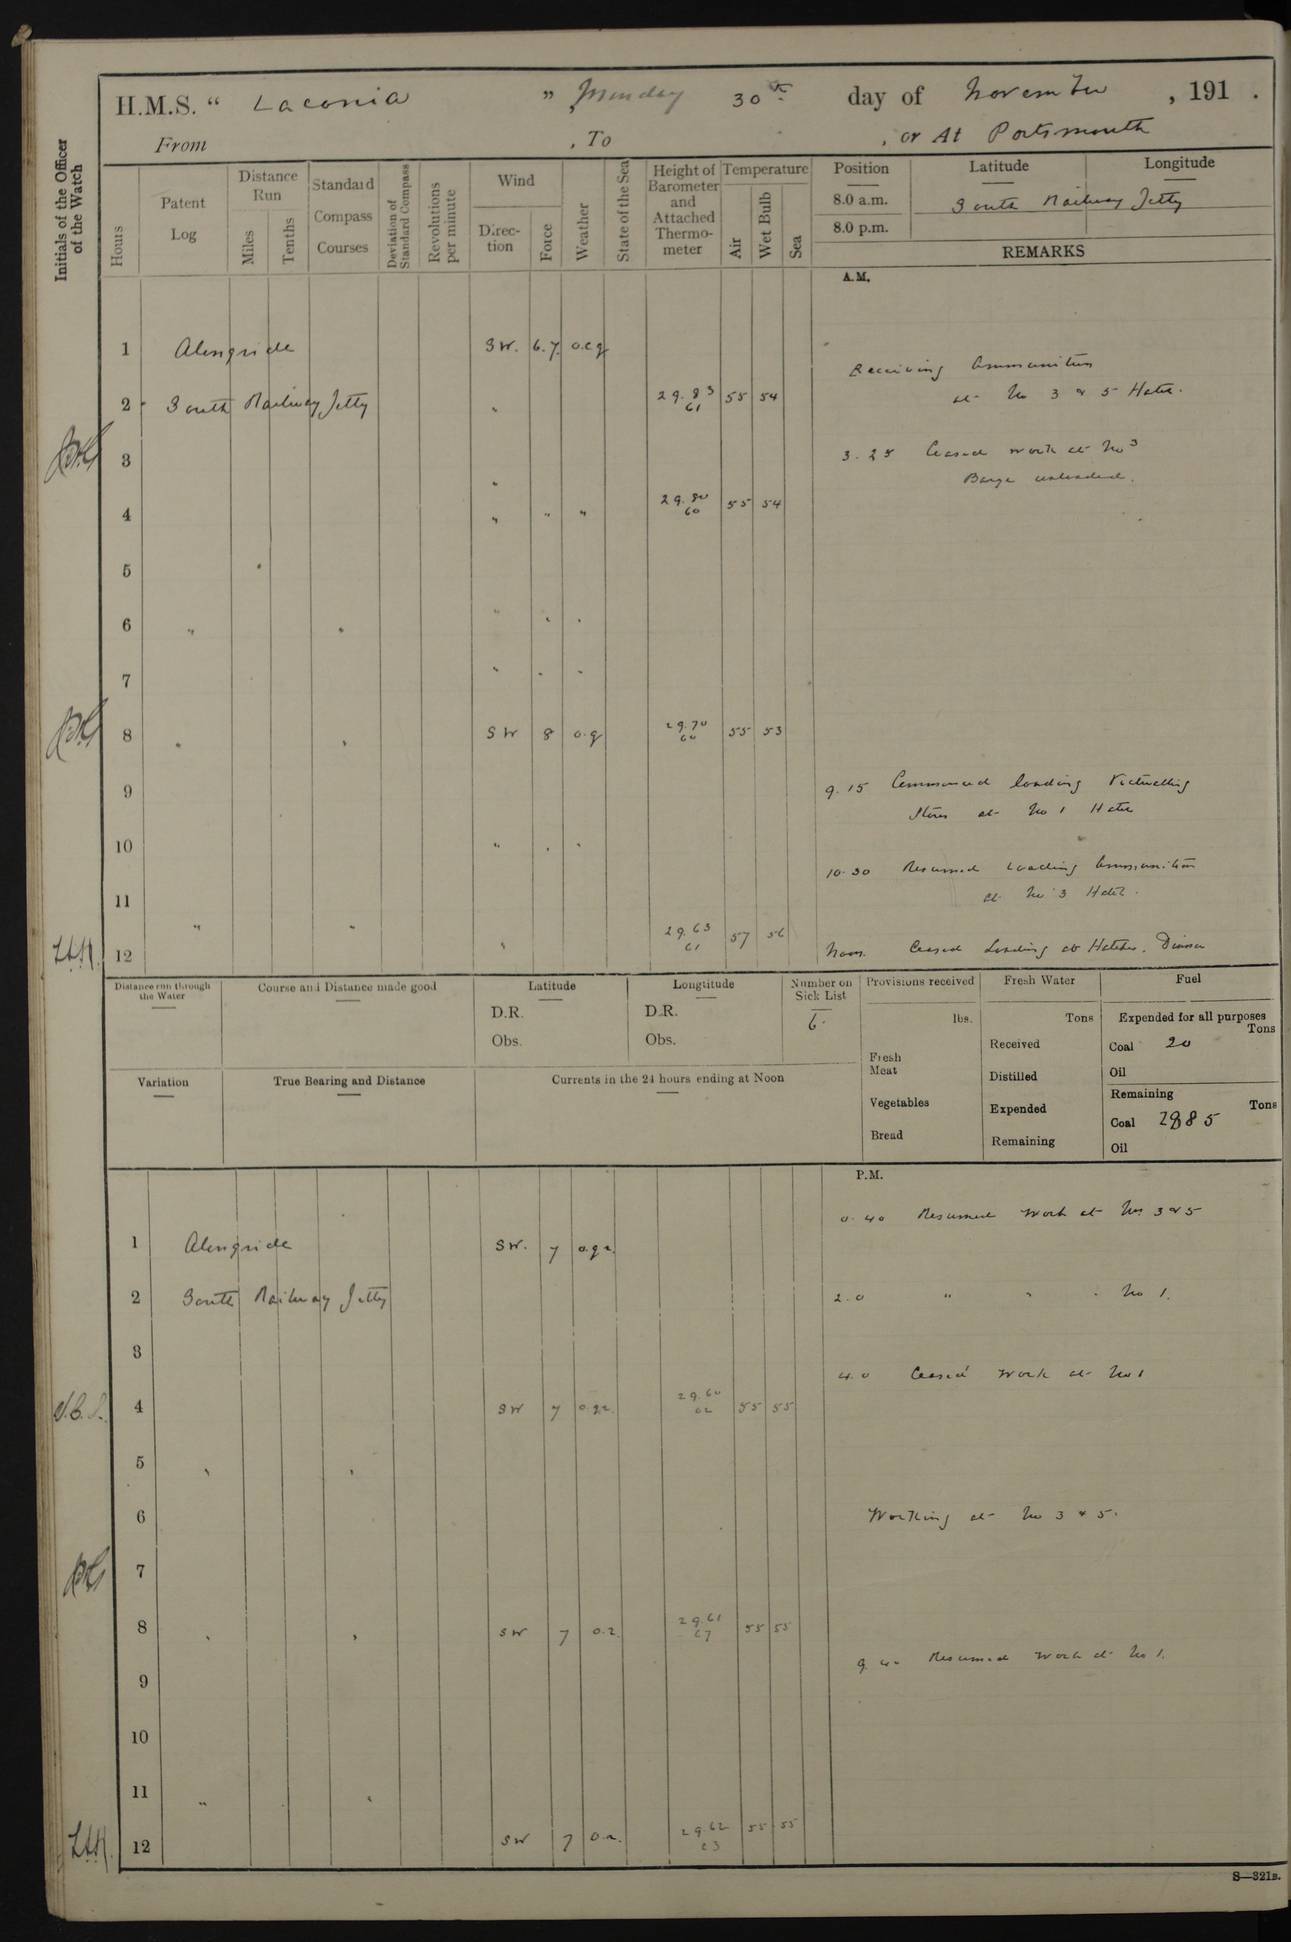 H.M.S. “ Laconia ” Monday 30th day of November , 191 .
From , To , or At Portsmouth
Initials of the Officer of the Watch
Hours
Patent Log
Distance Run
Miles
Tenths
Standard Compass Courses
Deviation of Standard Compass
Revolutions per minute
Wind
Direction
Force
Weather
State of the Sea
Height of Barometer and Attached Thermometer
Temperature
Air
Wet Bulb
Sea
Position
8.0 a.m.
8.0 p.m.
Latitude
Longitude
South Railway Jetty
REMARKS
A.M.
1 Alongside SW. 6.7. o.c.q
Receiving Ammunition
2 South Railway Jetty " 29.83 61 55 54
at No 3 & 5 Hatch.
3 "
3.25 Ceased work at No 3
Barge unloaded.
4 " " " 29.80 60 55 54
5
6 " " " " "
7 " " "
8 " " SW 8 o.q 29.70 60 55 53
9
9.15 Commenced loading Victualling
Stores at No 1 Hatch
10 " " "
10.30 Resumed Loading Ammunition
at No 3 Hatch.
11 " "
12 " 29.63 61 57 56
Noon. Ceased Loading at Hatches. Dinner
Distance run through the Water
Course and Distance made good
Latitude
D.R.
Obs.
Longtitude
D.R.
Obs.
Number on Sick List
6.
Provisions received
lbs.
Fresh Meat
Vegetables
Bread
Fresh Water
Tons
Received
Distilled
Expended
Remaining
Fuel
Expended for all purposes
Tons
Coal 20
Oil
Remaining
Tons
Coal 2885
Oil
Variation
True Bearing and Distance
Currents in the 24 hours ending at Noon
P.M.
0.40 Resumed work at Nos 3 & 5
1 Alongside SW. 7 o.q.r.
2 South Railway Jetty
2.0 " " " No 1.
3
4.0 Ceased work at No 1
4 SW 7 o.q.r. 29.60 62 55 55
5 " "
6
Working at No 3 & 5.
7
8 " " SW 7 o.r. 29.61 67 55 55
9.40 Resumed work at No 1.
9
10
11 " "
12 SW 7 o.r. 29.62 63 55 55
S—321B.